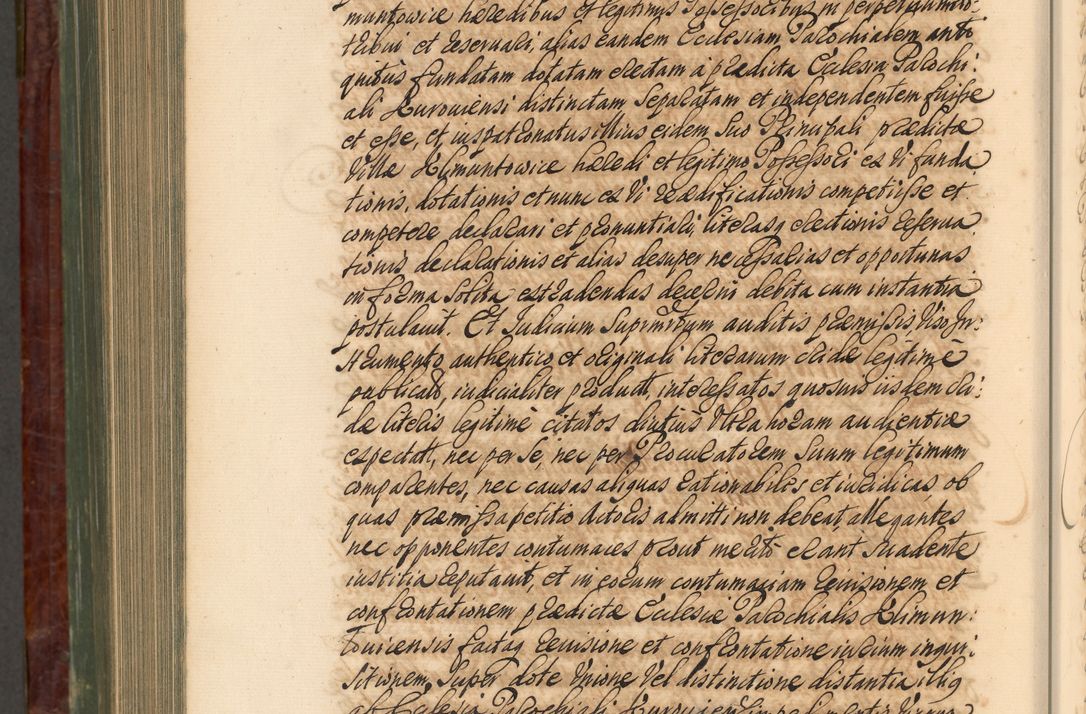 muntowice hæredibus et legitimis Possessoribus in perpetuum at:
tribui et reseruari, alias eandem Ecclesiam Parochialem anti
quitùs fundatam dotatam erectam à prædicta Ecclesia Parochi:
ali Kurouiensi distinctam separatam et independentem fuisse
et esse, et iuspatronatus illius eidem suo Principali prædictæ
Villæ Klymuntowice hæredi et legitimo Possessori ex vi funda
tionis, dotationis et nunc ex vi reædificationis competiisse et
competere declarari et pronuntiari, literasq erectionis reserua
tionis declarationis et alias desuper necessarias et opportunas
in forma solita extradendas decerni debita cum instantia
postulauit. Et Iudicium auditis præmissis viso In:
strumento authentico et originali literarum cridæ legitimè
publicato, iudicialiter producto, interessatos quosuis iisdem cri:
dæ literis legitimè citatos diutiùs vltra horam audientiæ
expectatos, nec per se, nec per Procuratorem suum legitimum
comparentes, nec causas aliquas rationabiles et iuridicas ob
quas præmissa petitio Actoris admitti non debeat allegantes
nec opponentes contumaces prout meritò erant suadente
iustitia reputauit, et in eorum contumaciam reuisionem et
confrontationem prædictæ Ecclesiæ Parochialis Klimun:
touicensis factaq reuisione et confrontatione inquisi
sitionem, super dote vnione vel distinctione distantia illiq
ab Ecclesia Parochiali Kurouiensi